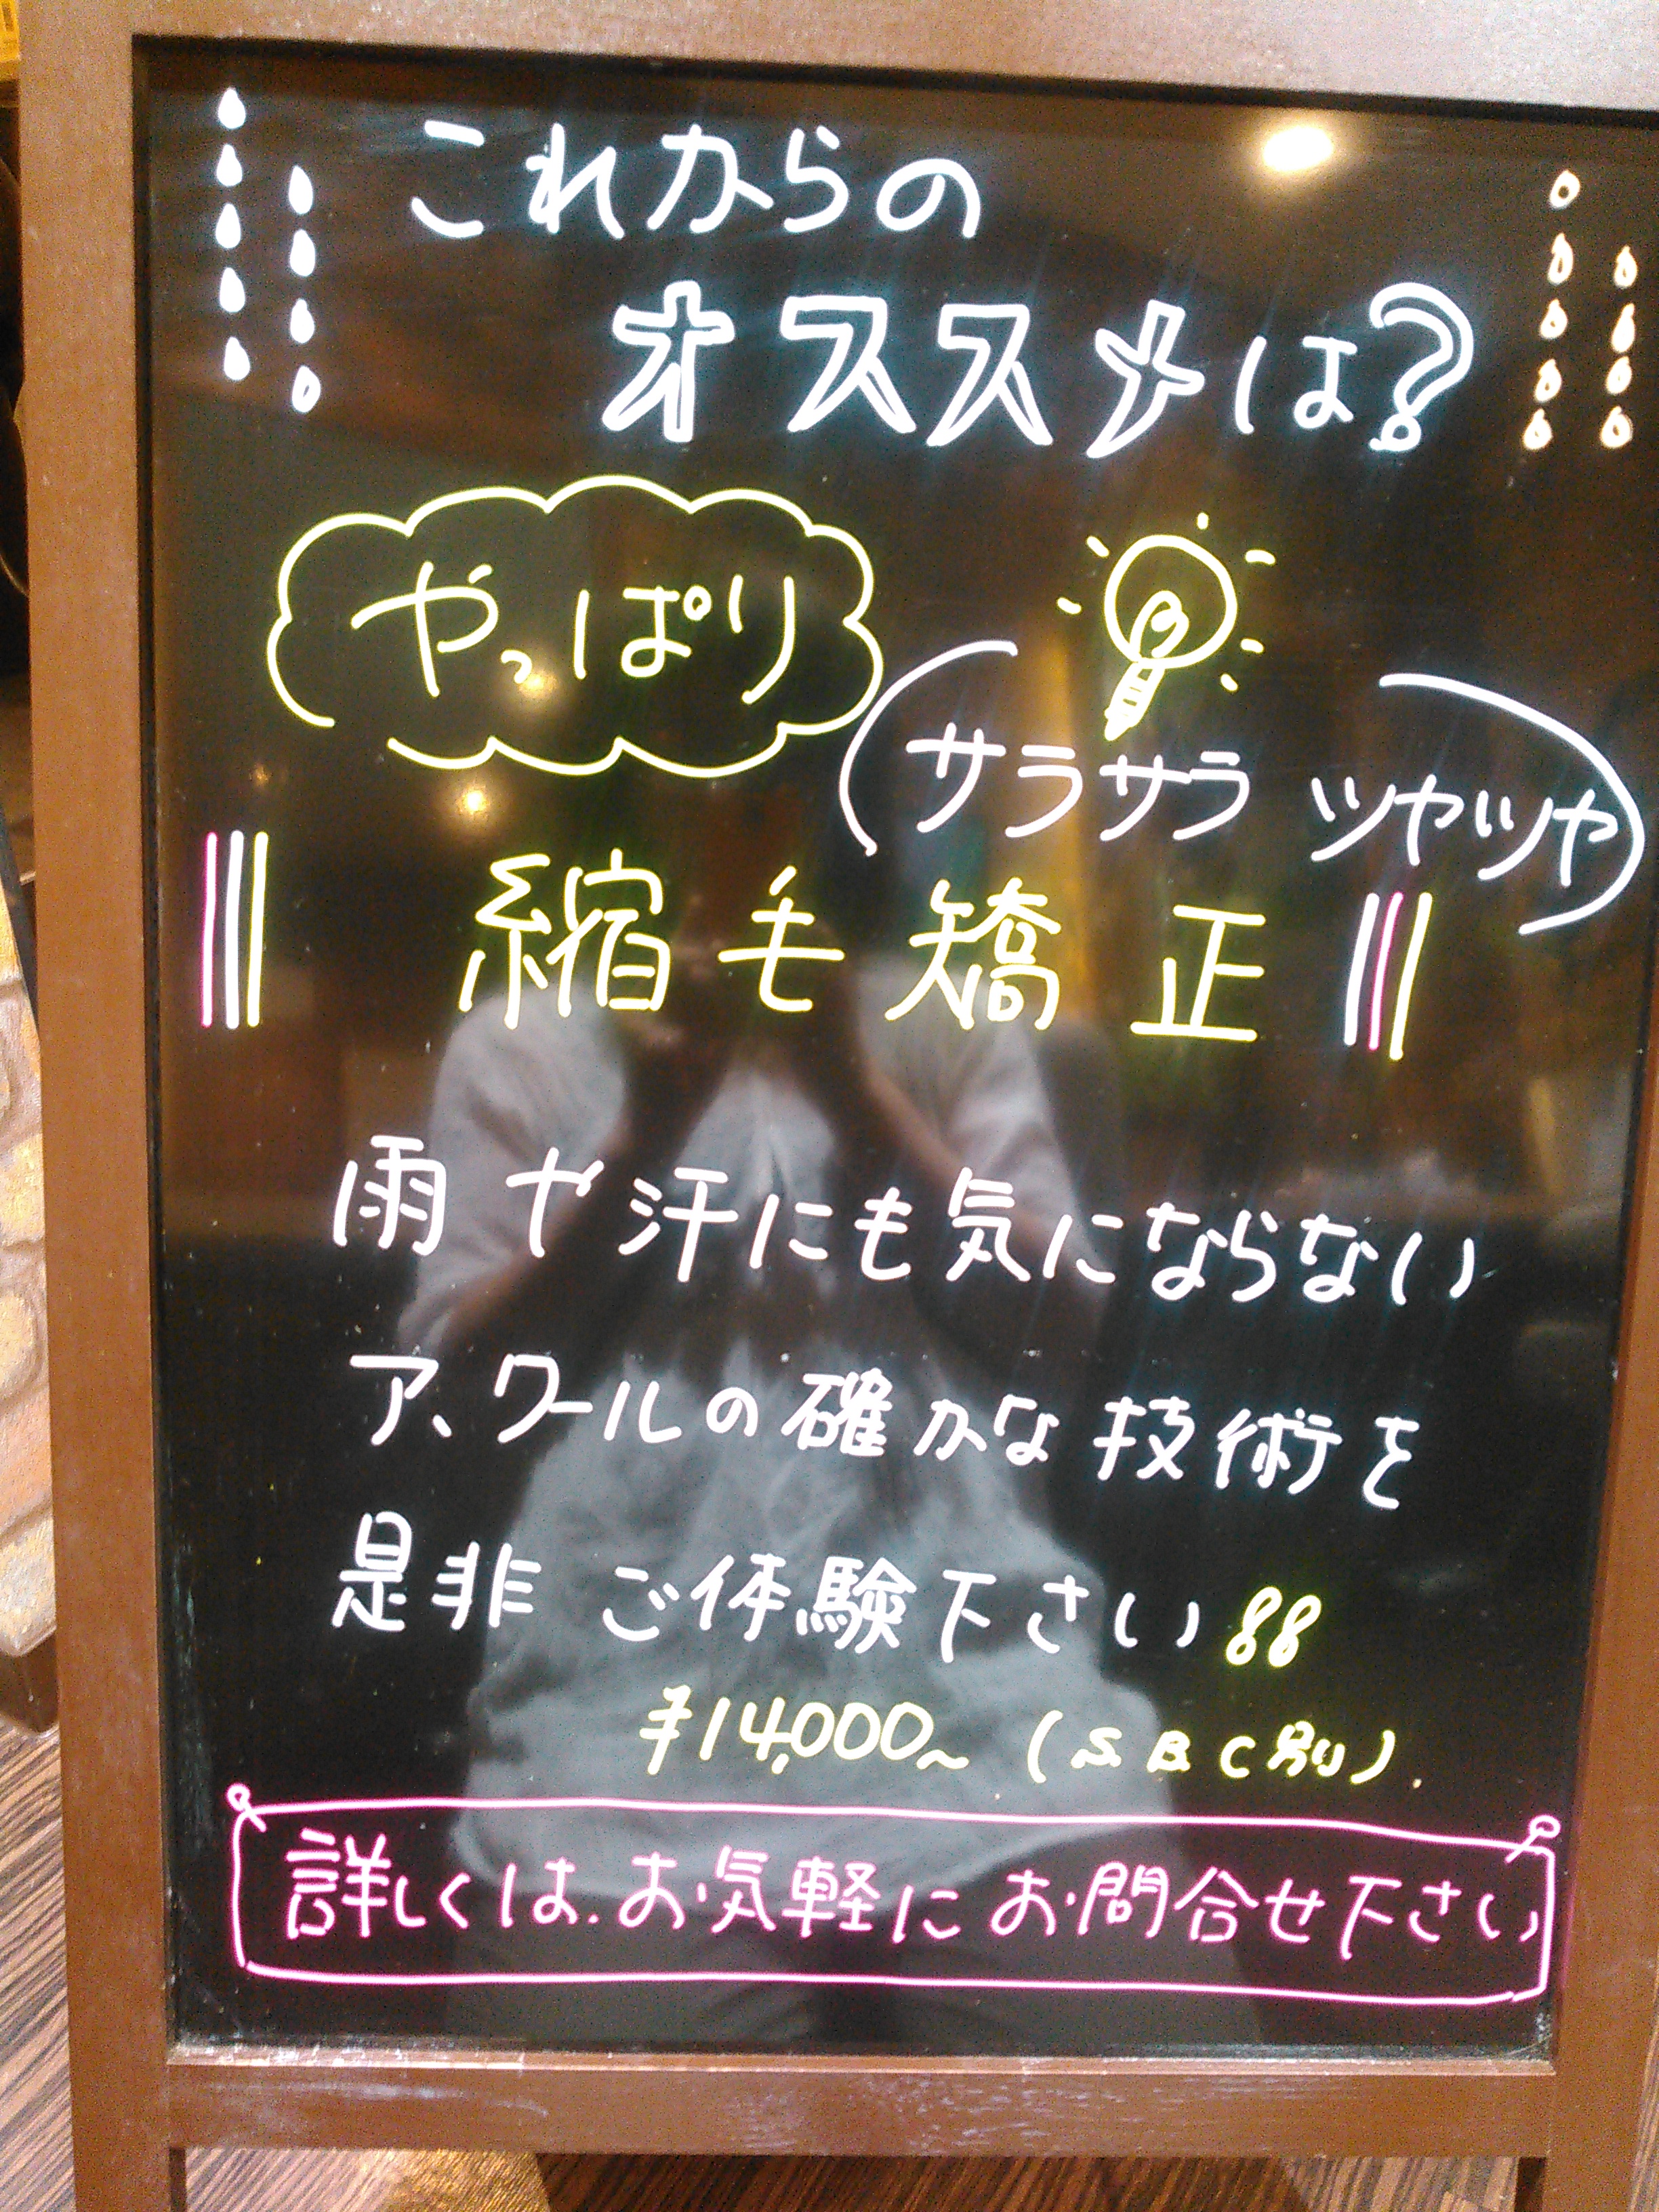 これからの
オススメは?
やっぱり
サラサラ ツヤツヤ
縮毛矯正
雨や汗にも気にならない
ア、クールの確かな技術を
是非ご体験下さい!!
¥14,000~ (S.B.C別).
詳しくは.お気軽にお問合せ下さい